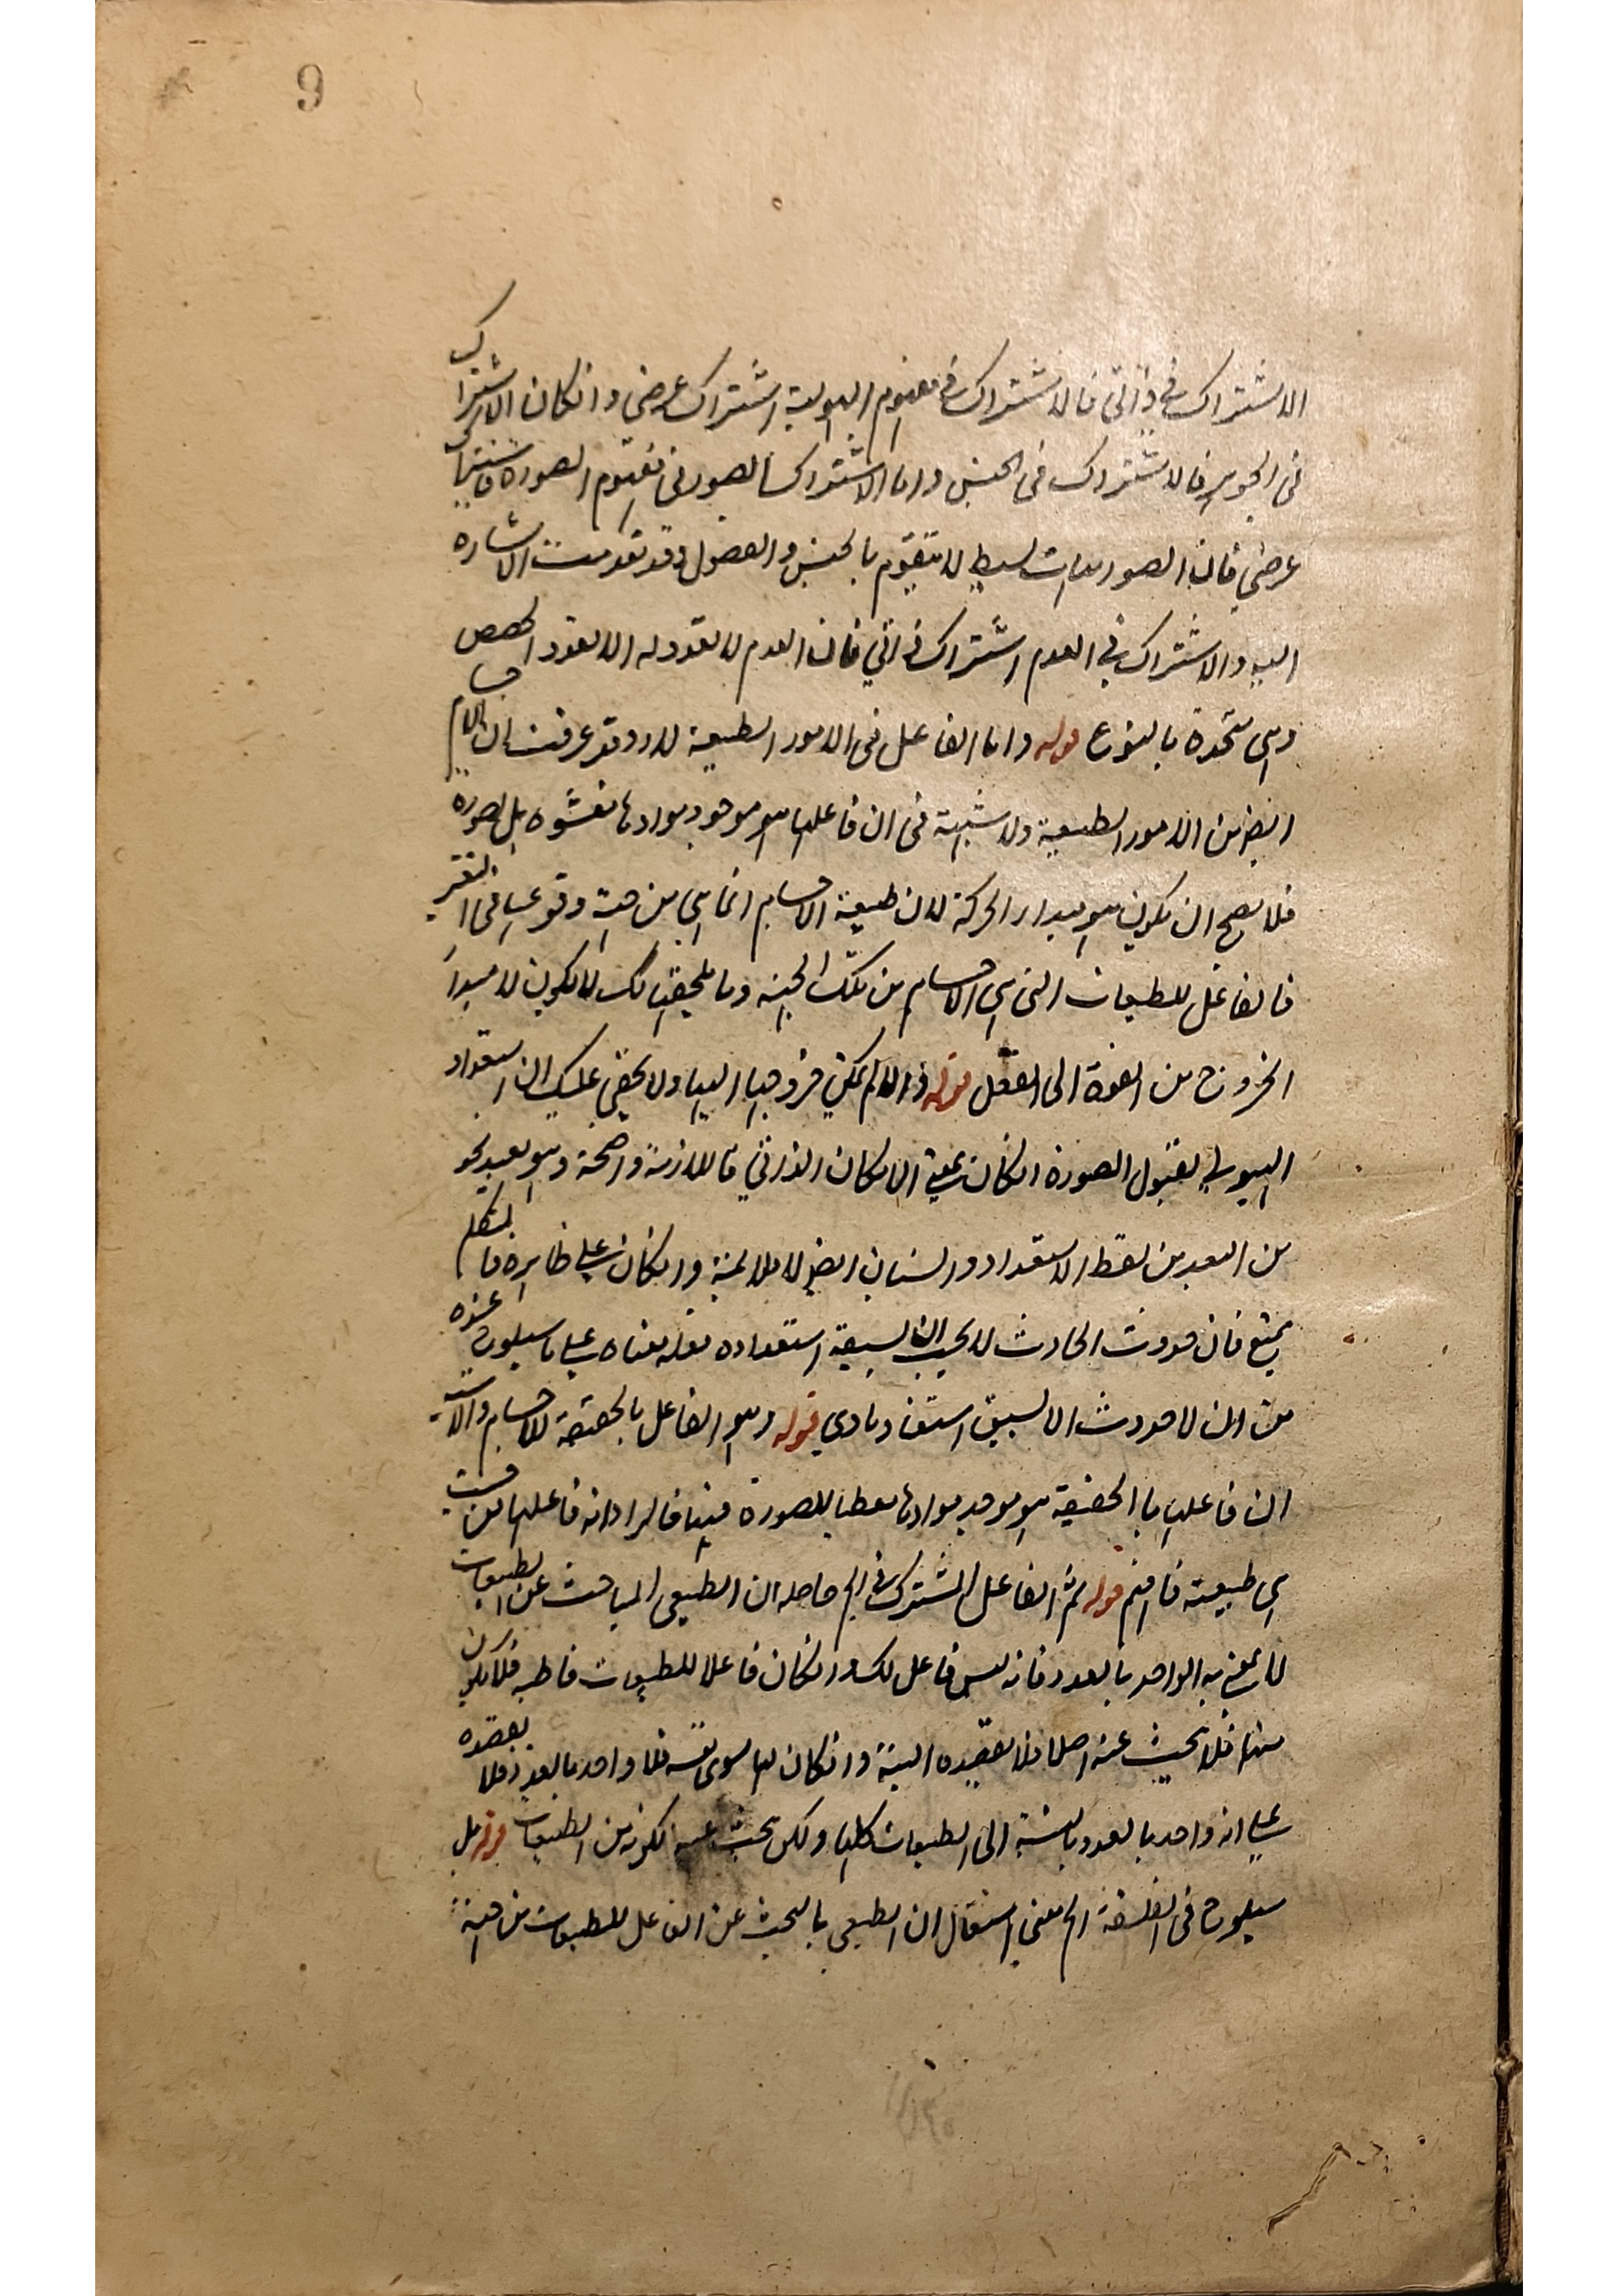 9
الاشتراك في ذاتي فالاشتراك في مفهوم الهيولية اشتراك عرضي وانكان الاشتراك
في الجوهر فالاشتراك في الجنس واما الاشتراك الصور في مفهوم الصورة
عرضي فان الصور بسايط لا يتقوم بالجنس والفصول وقد تقدمت الاشاره
اليه والاشتراك في العدم اشتراك ذاتي فان العدم لا تعدد له الا بتعدد الحصص
وهي متحدة بالنوع قوله واما الفاعل في الامور الطبيعية وقد عرفت ان الاجسام
ايضا من الامور الطبيعية ولا شبهة في ان فاعلها هو موجود بموادها بل بصورة
فلا يصح ان يكون هو مبدا الحركة لان طبيعية الاجسام انما هي من جهة وقوعها في التغير
فالفاعل للطبيعيات التي هي الاجسام من تلك الجهة وما يلحقها لا يكون الا مبدأ
الخروج من القوة الى الفعل قوله لم يكن خروجها اليها ولا يخفى عليك ان استعداد
الهيولى لقبول الصورة انكان بمعنى الامكان الذاتي فالملازمة واضحة وهو بعيد نحو
من البعد من لفظ الاستعداد والسياق ايضا لا يلائمه وانكان على ظاهره فالمتكلم
يمنع فان حدوث الحادث لا يجب ان يسبقه استعداده فلعله بناه على ما سيلوح عنده
من ان لا حدوث الا لسبق استعداد مادي قوله وهو الفاعل بالحقيقة للاجسام
ان فاعلها بالحقيقة هو موجد بموادها معطيا للصورة فيها فالمراد انه فاعلها من حيث
هي طبيعية فافهم قوله ثم الفاعل المشترك الخ حاصله ان الطبيعي الباحث عن الطبيعيات
لا يعني به الواحد بالعدد فانه ليس فاعل كك وانكان فاعلا للطبيعيات قاطبه فلا يكون
منها فلا يبحث عنه اصلا فلا يقصده البتة وانكان لها سوى نفسه فلا واحد بالعدد فلا يقصده
على انه واحد بالعدد بالنسبة الى الطبيعيات كلها ولكن يبحث عنه لكونه من الطبيعيات قوله بل
سيلوح في الفلسفة الخ يعني استقال ان الطبيعي بالبحث عن الفاعل للطبيعيات من جهة